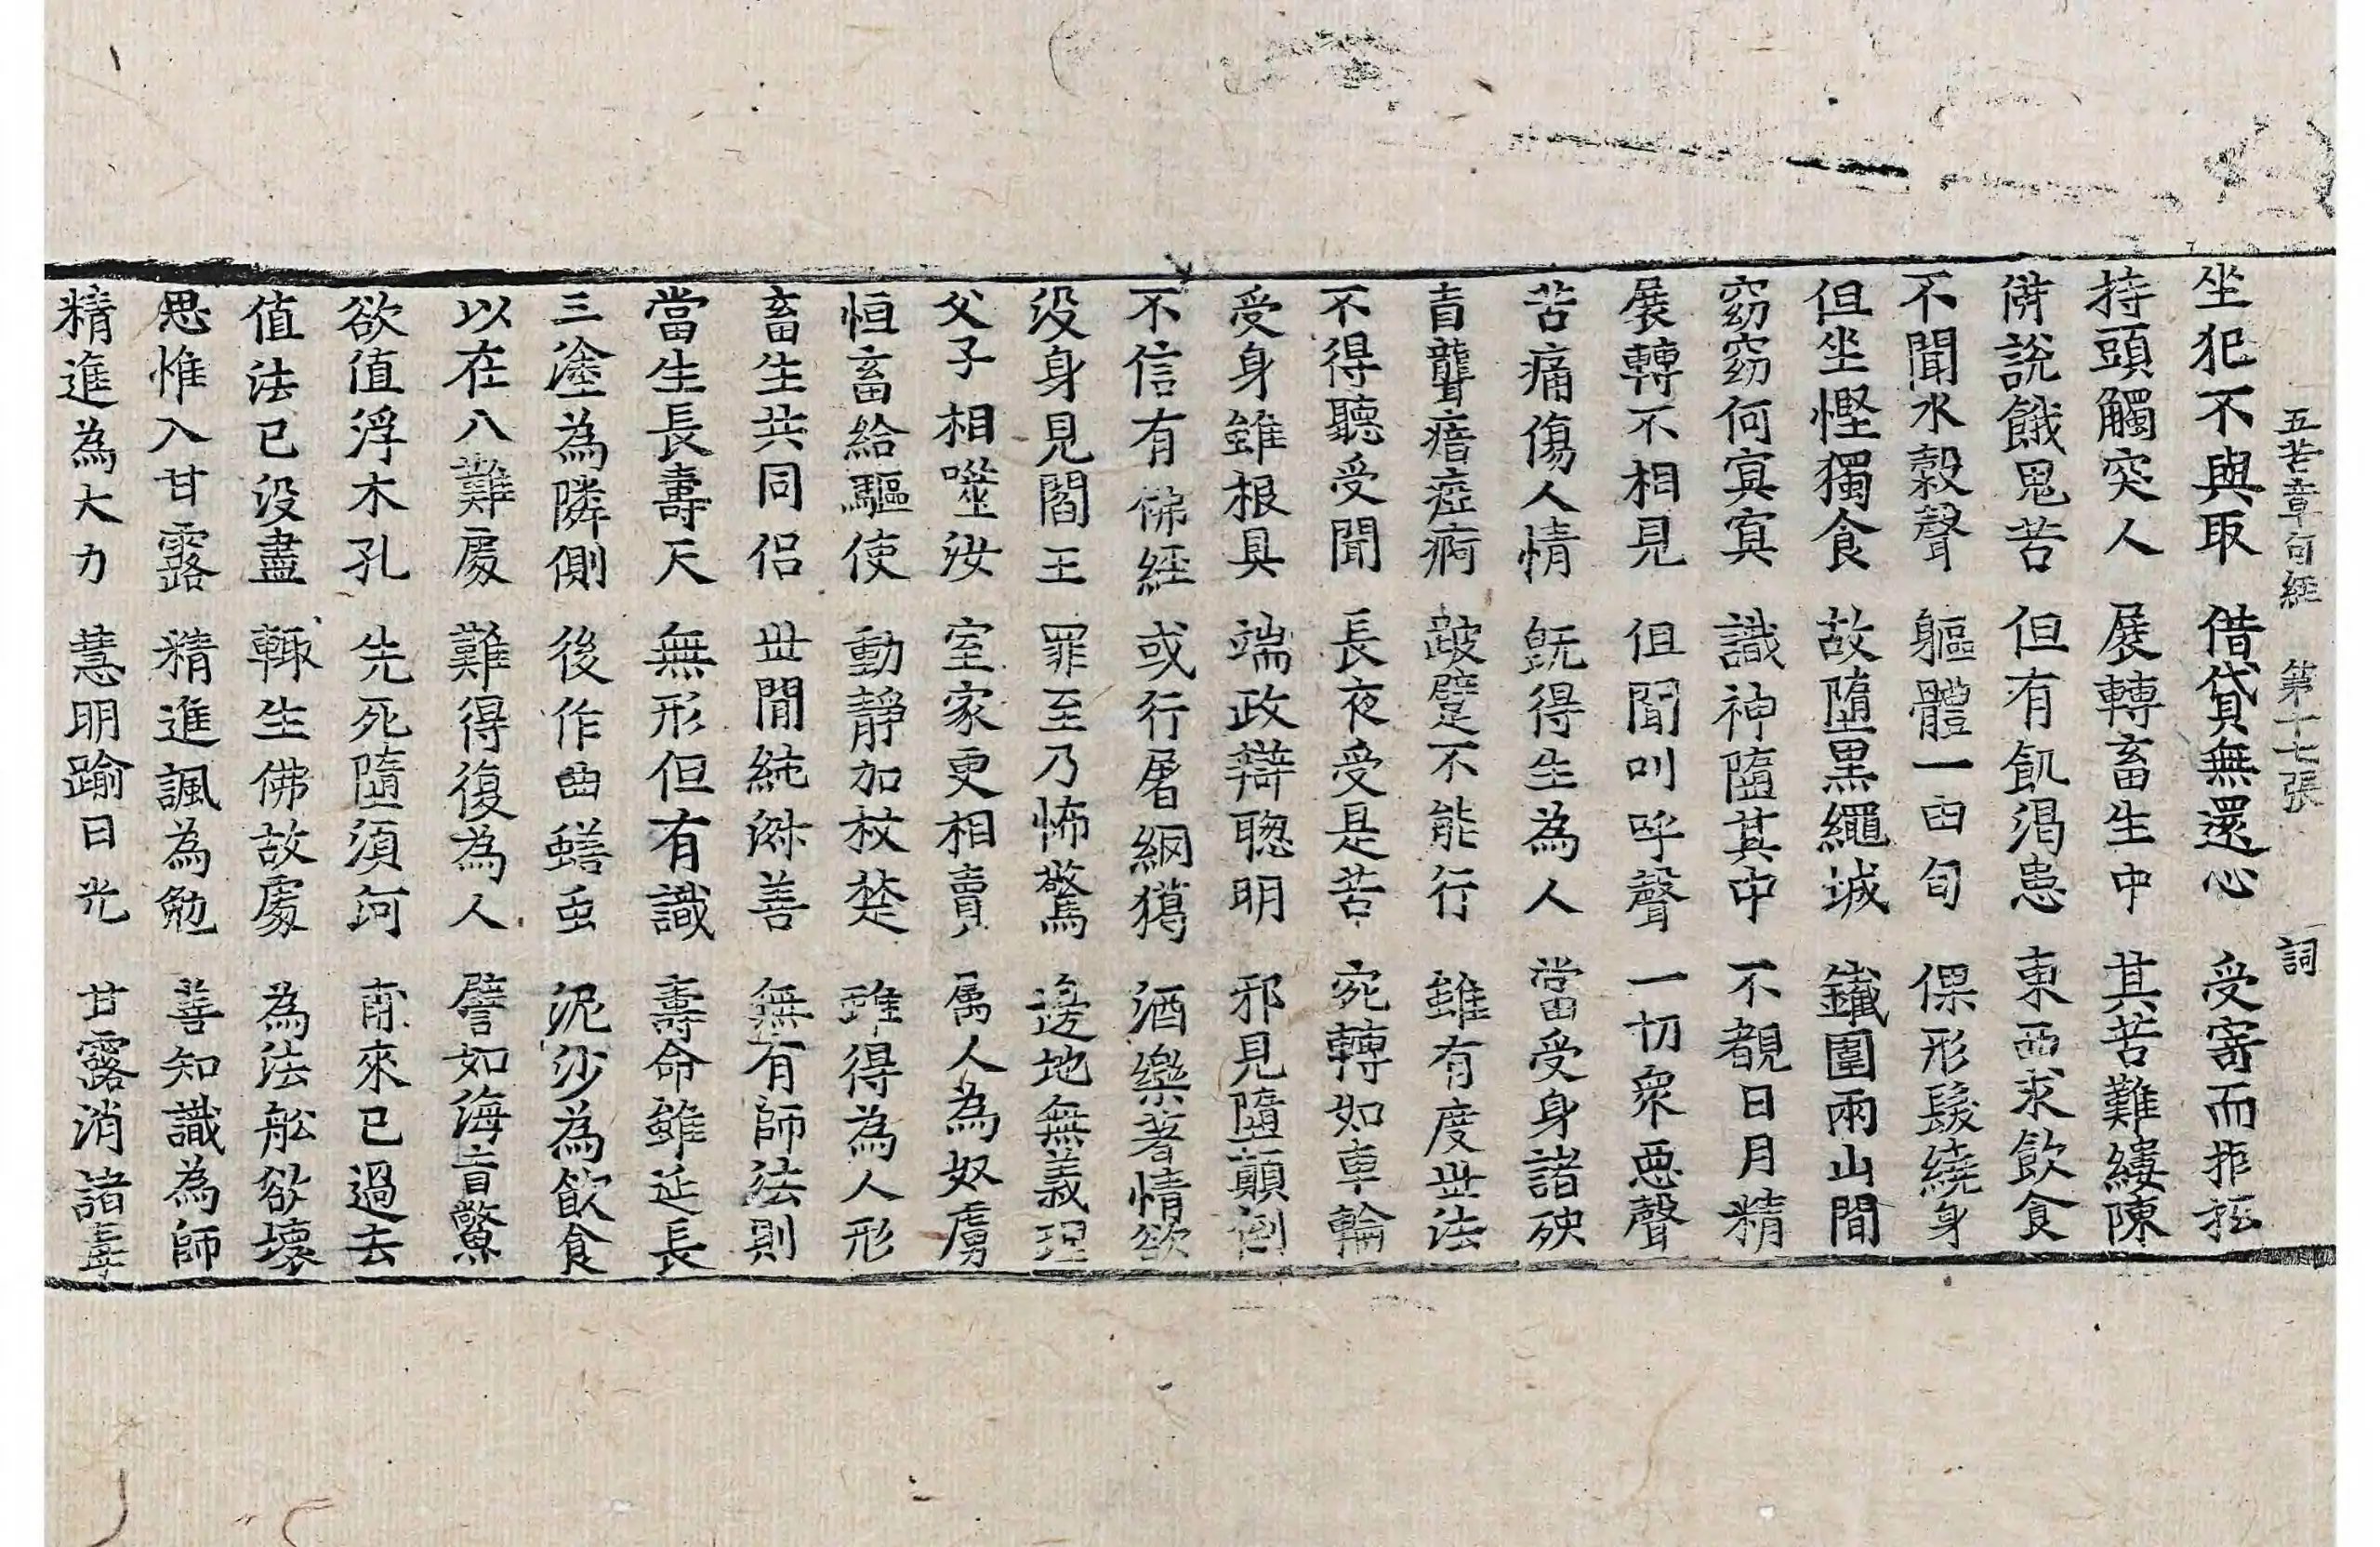 五苦章句經 第十七張 詞
坐犯不與取 借貸無還心 受寄而拒抵
持頭觸突人 展轉畜生中 其苦難縷陳
俻說餓鬼苦 但有飢渴患 東西求飲食
不聞水穀聲 軀體一由旬 倮形髮繞身
但坐慳獨食 故墮黑繩城 鐵圍兩山間
窈窈何㝠㝠 識神墮其中 不覩日月精
展轉不相見 但聞叫呼聲 一切衆惡聲
苦痛傷人情 旣得生為人 當受身諸殃
盲聾瘖瘂痾 跛躄不能行 雖有度世法
不得聽受聞 長夜受是苦 宛轉如車輪
受身雖根具 端政辯聦明 邪見墮顚倒
不信有佛經 或行屠網獵 酒樂著情欲
没身見閻王 罪至乃怖驚 邊地無義理
父子相噬汝 室家更相賣 属人為奴虜
恒畜給驅使 動靜加杖楚 雖得為人形
畜生共同侣 世閒純㳽善 無有師法則
當生長壽天 無形但有識 壽命雖延長
三塗為隣側 後作曲蟮虫 泥沙為飲食
以在八難處 難得復為人 譬如海盲鱉
欲值浮木孔 先死墮須河 甫來已過去
值法已没盡 輙生佛故處 為法舩欲壞
思惟入甘露 精進諷為勉 善知識為師
精進為大力 慧明踰日光 甘露消諸毒